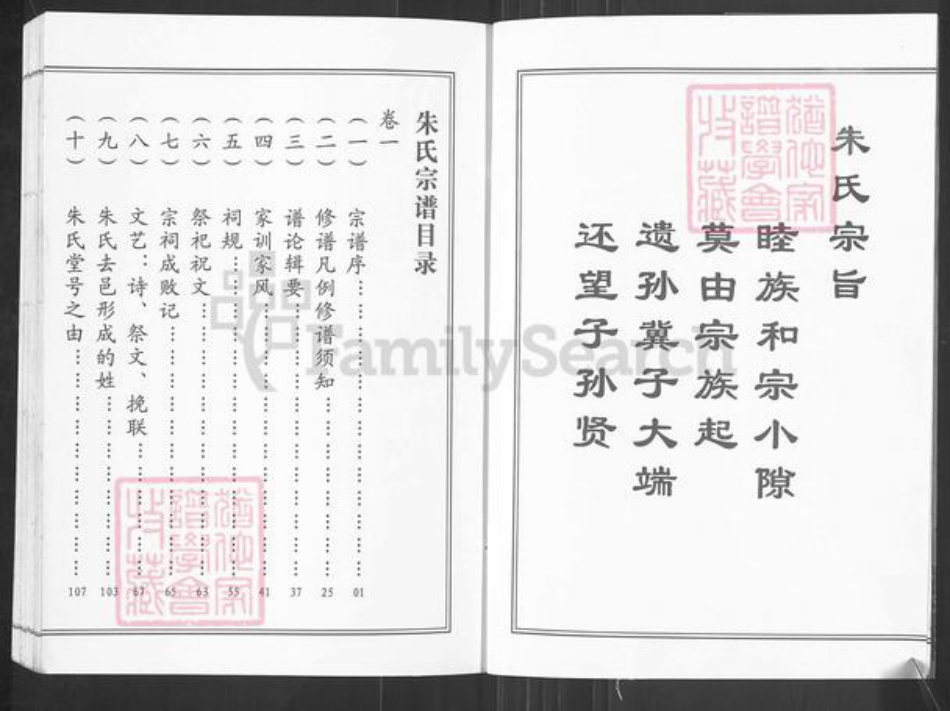 朱氏宗旨
睦族和宗小隙
莫由宗族起
遗孙冀子大端
还望子孙贤
朱氏宗谱目录
卷一
(一) 宗谱序……………………01
(二) 修谱凡例修谱须知……………………25
(三) 谱论辑要……………………37
(四) 家训家风……………………41
(五) 祠规……………………55
(六) 祭祀祝文……………………63
(七) 宗祠成败记……………………65
(八) 文艺：诗、祭文、挽联……………………67
(九) 朱氏去邑形成的姓……………………103
(十) 朱氏堂号之由……………………107
FamilySearch